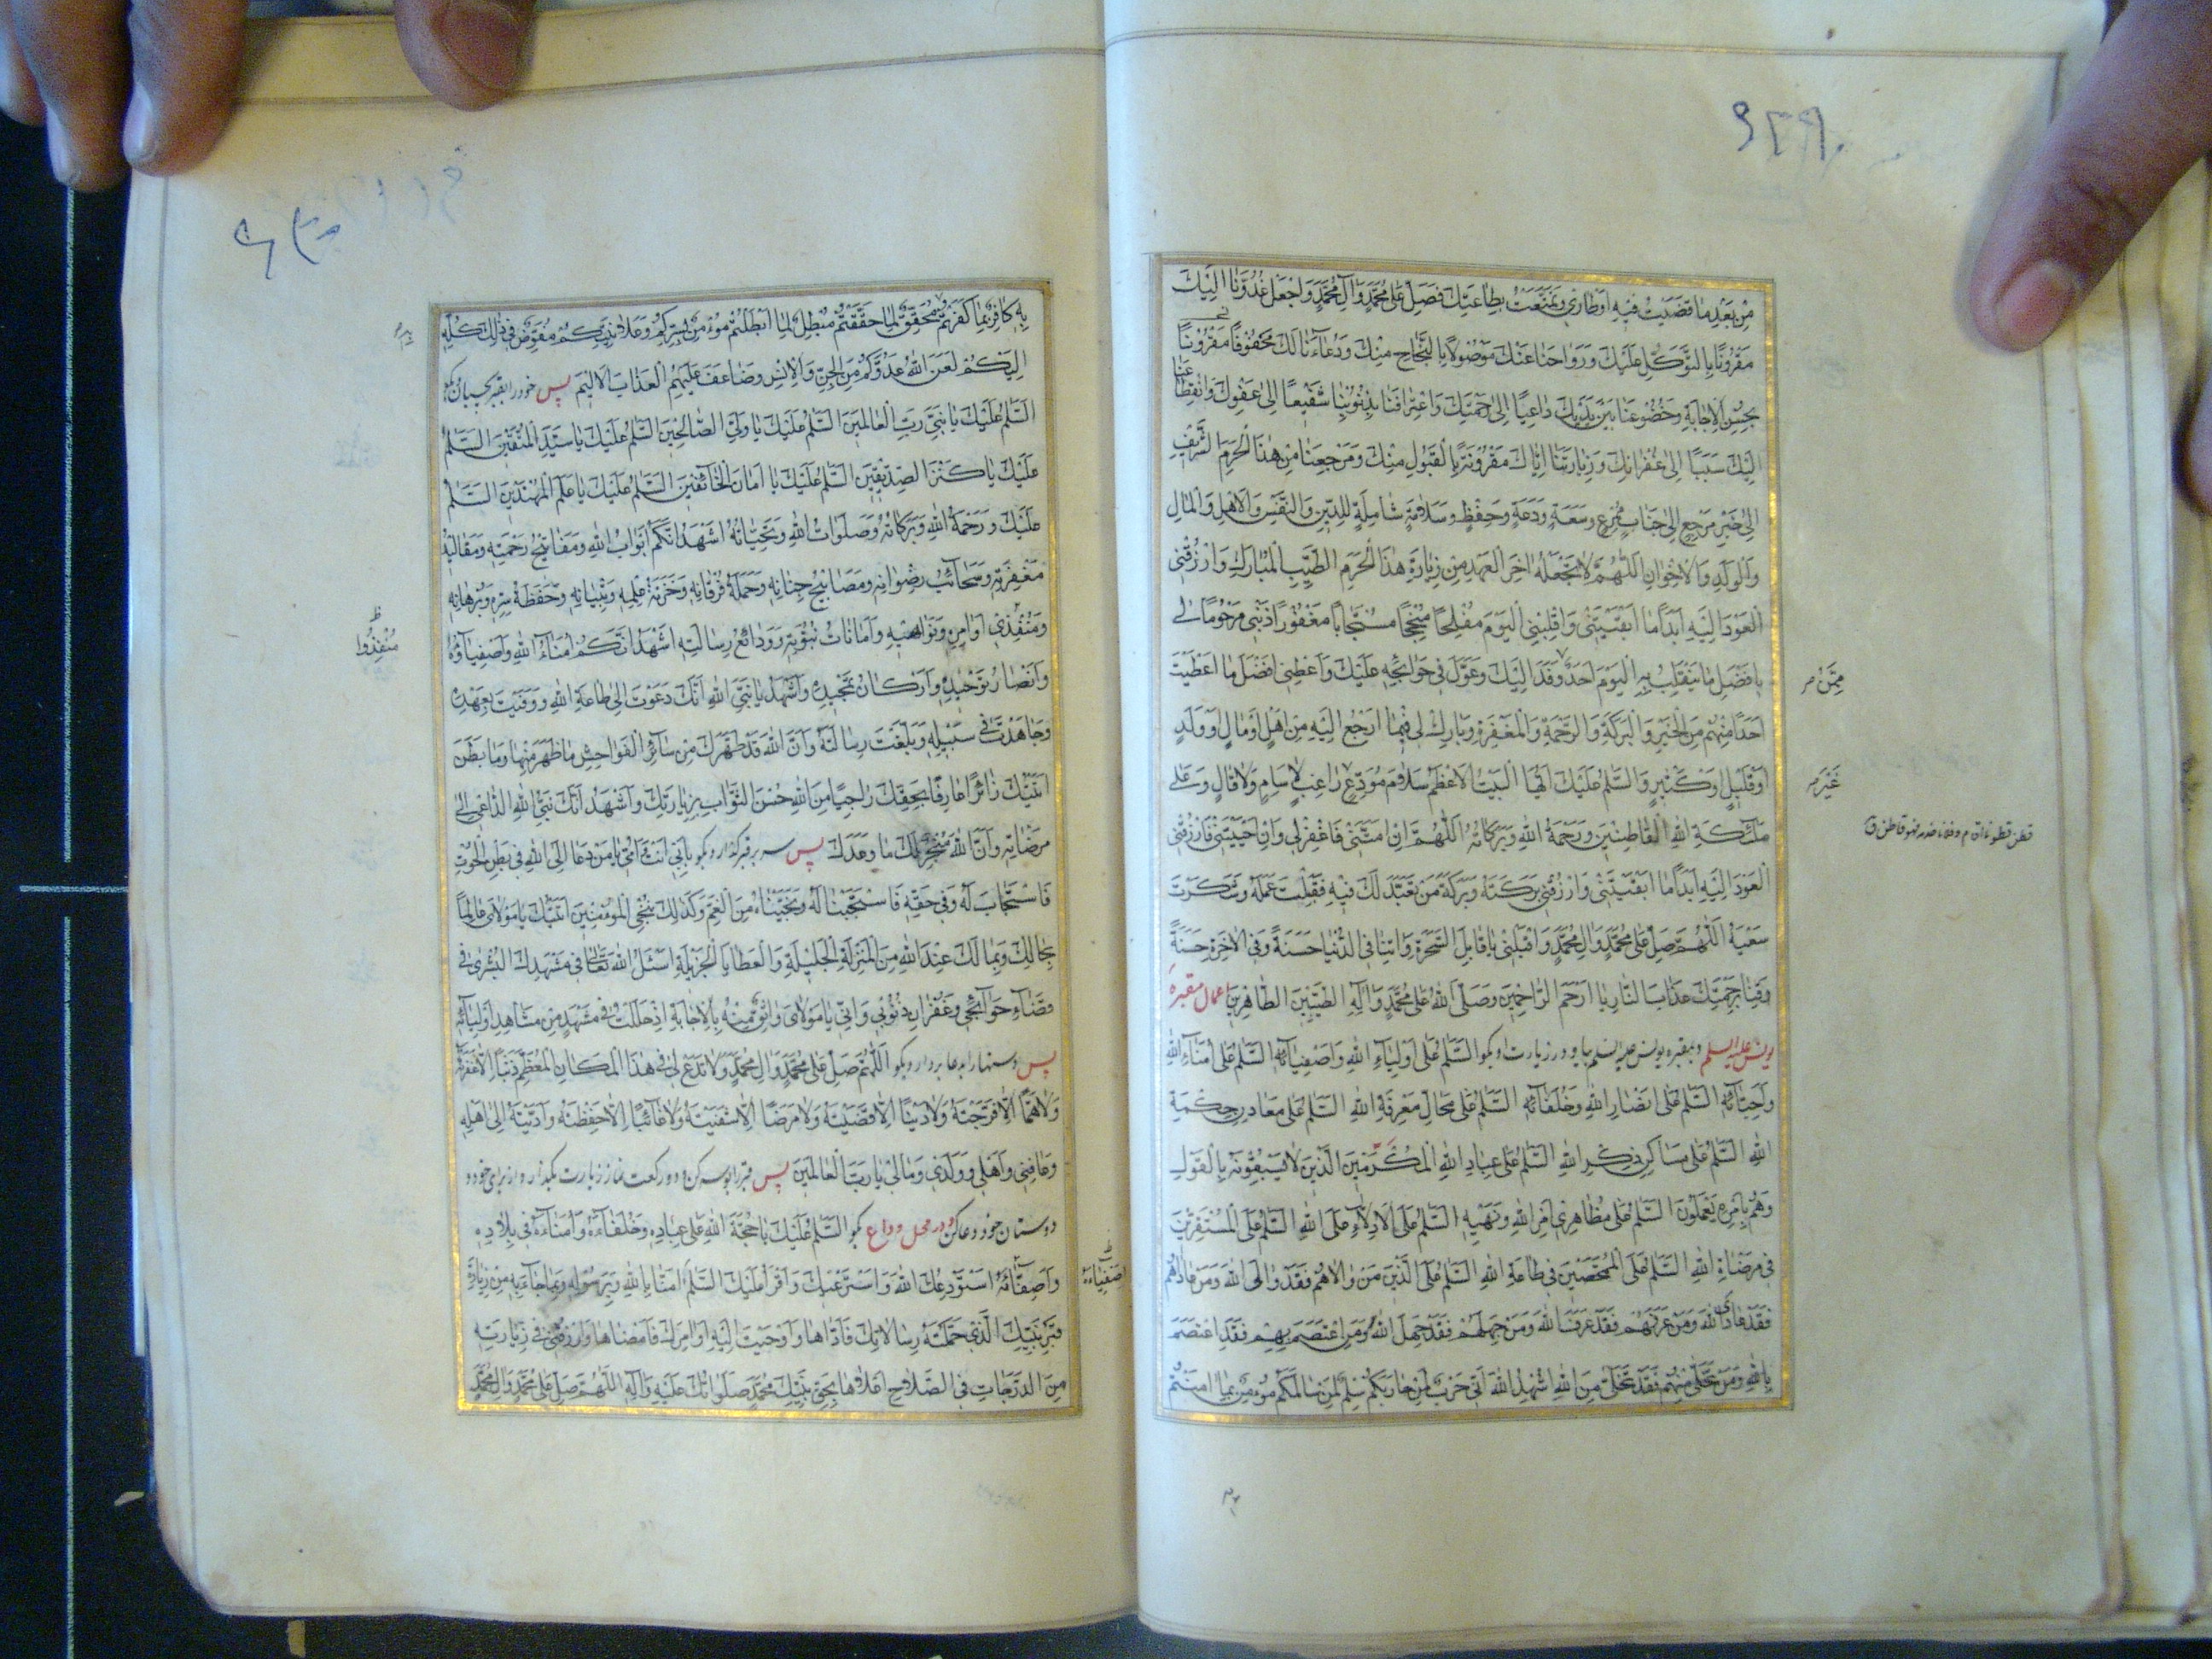 ٩٢٩
مِنْ بَعْدِ مَا قَضَيْتُ فِيهِ اَوْطَارِي وَتَمَتَّعْتُ بِطَاعَتِكَ فَصَلِّ عَلَى مُحَمَّدٍ وَآلِ مُحَمَّدٍ وَاجْعَلْ غُدُوَّنَا اِلَيْكَ
مَقْرُونًا بِالتَّوَكُّلِ عَلَيْكَ وَرَوَاحَنَا عَنْكَ مَوْصُولًا بِالنَّجَاحِ مِنْكَ وَدُعَاءَنَا لَكَ مَحْفُوفًا مَقْرُونًا
بِحُسْنِ الْاِجَابَةِ وَخُضُوعَنَا بَيْنَ يَدَيْكَ دَاعِيًا اِلَى رَحْمَتِكَ وَاعْتِرَافَنَا بِذُنُوبِنَا شَفِيعًا اِلَى عَفْوِكَ وَانْقِطَاعَنَا
اِلَيْكَ سَبَبًا اِلَى غُفْرَانِكَ وَزِيَارَتَنَا اِيَّاكَ مَقْرُونَةً بِالْقَبُولِ مِنْكَ وَمَرْجِعَنَا مِنْ هٰذَا الْحَرَمِ الشَّرِيفِ
اِلَى خَيْرِ مَرْجِعٍ اِلَى جَنَابٍ مُمْرِعٍ وَسَعَةٍ وَدَعَةٍ وَحِفْظٍ وَسَلَامَةٍ شَامِلَةٍ لِلدِّينِ وَالنَّفْسِ وَالْاَهْلِ وَالْمَالِ
وَالْوَلَدِ وَالْاِخْوَانِ اَللّٰهُمَّ لَا تَجْعَلْهُ آخِرَ الْعَهْدِ مِنْ زِيَارَةِ هٰذَا الْحَرَمِ الطَّيِّبِ الْمُبَارَكِ وَارْزُقْنِي
الْعَوْدَ اِلَيْهِ اَبَدًا مَا اَبْقَيْتَنِي وَاقْلِبْنِي الْيَوْمَ مُفْلِحًا مُنْجِحًا مُسْتَجَابًا مَغْفُورًا ذَنْبِي مَرْحُومًا
بِاَفْضَلِ مَا يَنْقَلِبُ بِهِ الْيَوْمَ اَحَدٌ وَفَدَ اِلَيْكَ وَعَوَّلَ فِي حَوَائِجِهِ عَلَيْكَ وَاَعْطِنِي اَفْضَلَ مَا اَعْطَيْتَ
مِمَّنْ م
اَحَدًا مِنْهُمْ مِنَ الْخَيْرِ وَالْبَرَكَةِ وَالرَّحْمَةِ وَالْمَغْفِرَةِ وَبَارِكْ لِي فِيمَا اَرْجِعُ اِلَيْهِ مِنْ اَهْلٍ وَمَالٍ وَوَلَدٍ
اَوْ قَلِيلٍ وَكَثِيرٍ وَالسَّلٰمُ عَلَيْكَ اَيُّهَا الْبَيْتُ الْاَعْظَمُ سَلَامَ مُوَدِّعٍ رَاغِبٍ لَا سَامٍ وَلَا قَالٍ وَعَلَى
غَيْرَ م
مَلٰئِكَةِ اللّٰهِ الْقَاطِنِينَ وَرَحْمَةُ اللّٰهِ وَبَرَكَاتُهُ اَللّٰهُمَّ اِنْ اَمَتَّنِي فَاغْفِرْ لِي وَاِنْ اَحْيَيْتَنِي فَارْزُقْنِي
الْعَوْدَ اِلَيْهِ اَبَدًا مَا اَبْقَيْتَنِي وَارْزُقْنِي بَرَكَتَهُ وَبَرَكَةَ مَنْ تَعَبَّدَ لَكَ فِيهِ فَقَبِلْتَ عَمَلَهُ وَشَكَرْتَ
سَعْيَهُ اَللّٰهُمَّ صَلِّ عَلَى مُحَمَّدٍ وَآلِ مُحَمَّدٍ وَاقْبَلْنِي يَا قَابِلَ السَّحَرَةِ وَآتِنَا فِي الدُّنْيَا حَسَنَةً وَفِي الْآخِرَةِ حَسَنَةً
وَقِنَا بِرَحْمَتِكَ عَذَابَ النَّارِ يَا اَرْحَمَ الرَّاحِمِينَ وَصَلَّى اللّٰهُ عَلَى مُحَمَّدٍ وَآلِهِ الطَّيِّبِينَ الطَّاهِرِينَ اعمال مقبرهٔ
يونس عليه السلم و بمقبره يونس عليه السلم بيا و در زيارت او بكو السَّلٰمُ عَلَى اَوْلِيَاءِ اللّٰهِ وَاَصْفِيَائِهِ السَّلٰمُ عَلَى اُمَنَاءِ اللّٰهِ
وَاَحِبَّائِهِ السَّلٰمُ عَلَى اَنْصَارِ اللّٰهِ وَخُلَفَائِهِ السَّلٰمُ عَلَى مَحَالِّ مَعْرِفَةِ اللّٰهِ السَّلٰمُ عَلَى مَعَادِنِ حِكْمَةِ
اللّٰهِ السَّلٰمُ عَلَى مَسَاكِنِ ذِكْرِ اللّٰهِ السَّلٰمُ عَلَى عِبَادِ اللّٰهِ الْمُكْرَمِينَ الَّذِينَ لَا يَسْبِقُونَهُ بِالْقَوْلِ
وَهُمْ بِاَمْرِهِ يَعْمَلُونَ السَّلٰمُ عَلَى مُظَاهِرِي اَمْرِ اللّٰهِ وَنَهْيِهِ السَّلٰمُ عَلَى الْاَدِلَّاءِ عَلَى اللّٰهِ السَّلٰمُ عَلَى الْمُسْتَقِرِّينَ
فِي مَرْضَاةِ اللّٰهِ السَّلٰمُ عَلَى الْمُمَحَّصِينَ فِي طَاعَةِ اللّٰهِ السَّلٰمُ عَلَى الَّذِينَ مَنْ وَالَاهُمْ فَقَدْ وَالَى اللّٰهَ وَمَنْ عَادَاهُمْ
فَقَدْ عَادَى اللّٰهَ وَمَنْ عَرَفَهُمْ فَقَدْ عَرَفَ اللّٰهَ وَمَنْ جَهِلَهُمْ فَقَدْ جَهِلَ اللّٰهَ وَمَنِ اعْتَصَمَ بِهِمْ فَقَدِ اعْتَصَمَ
بِاللّٰهِ وَمَنْ تَخَلَّى مِنْهُمْ فَقَدْ تَخَلَّى مِنَ اللّٰهِ اُشْهِدُ اللّٰهَ اَنِّي حَرْبٌ لِمَنْ حَارَبَكُمْ سِلْمٌ لِمَنْ سَالَمَكُمْ مُؤْمِنٌ بِمَا آمَنْتُمْ
بِهِ كَافِرٌ بِمَا كَفَرْتُمْ مُحَقِّقٌ لِمَا حَقَّقْتُمْ مُبْطِلٌ لِمَا اَبْطَلْتُمْ مُؤْمِنٌ بِسِرِّكُمْ وَعَلَانِيَتِكُمْ مُفَوِّضٌ فِي ذٰلِكَ كُلِّهِ
اِلَيْكُمْ لَعَنَ اللّٰهُ عَدُوَّكُمْ مِنَ الْجِنِّ وَالْاِنْسِ وَضَاعَفَ عَلَيْهِمُ الْعَذَابَ الْاَلِيمَ پس خود را بقبر بچسبان و بكو
السَّلٰمُ عَلَيْكَ يَا نَبِيَّ رَبِّ الْعَالَمِينَ السَّلٰمُ عَلَيْكَ يَا وَلِيَّ الصَّالِحِينَ السَّلٰمُ عَلَيْكَ يَا سَيِّدَ الْمُتَّقِينَ السَّلٰمُ
عَلَيْكَ يَا كَنْزَ الصِّدِّيقِينَ السَّلٰمُ عَلَيْكَ يَا اَمَانَ الْخَائِفِينَ السَّلٰمُ عَلَيْكَ يَا عَلَمَ الْمُهْتَدِينَ السَّلٰمُ
عَلَيْكَ وَرَحْمَةُ اللّٰهِ وَبَرَكَاتُهُ وَصَلَوَاتُ اللّٰهِ وَتَحِيَّاتُهُ اَشْهَدُ اَنَّكُمْ اَبْوَابُ اللّٰهِ وَمَفَاتِيحُ رَحْمَتِهِ وَمَقَالِيدُ
مَغْفِرَتِهِ وَسَحَائِبُ رِضْوَانِهِ وَمَصَابِيحُ جِنَانِهِ وَحَمَلَةُ فُرْقَانِهِ وَخَزَنَةُ عِلْمِهِ وَتِبْيَانِهِ وَحَفَظَةُ سِرِّهِ وَبُرْهَانِهِ
وَمُنْفِذِي اَوَامِرِهِ وَنَوَاهِيهِ وَاَمَانَاتُ نُبُوَّتِهِ وَوَدَائِعُ رِسَالَتِهِ اَشْهَدُ اَنَّكُمْ اُمَنَاءُ اللّٰهِ وَاَصْفِيَاؤُهُ
مُنْفِذُوا ظ
وَاَنْصَارُ تَوْحِيدِهِ وَاَرْكَانُ تَمْجِيدِهِ وَاَشْهَدُ يَا نَبِيَّ اللّٰهِ اَنَّكَ دَعَوْتَ اِلَى طَاعَةِ اللّٰهِ وَوَفَيْتَ بِعَهْدِهِ
وَجَاهَدْتَ فِي سَبِيلِهِ وَبَلَّغْتَ رِسَالَتَهُ وَاَنَّ اللّٰهَ قَدْ طَهَّرَكَ مِنْ سَائِرِ الْفَوَاحِشِ مَا ظَهَرَ مِنْهَا وَمَا بَطَنَ
اَتَيْتُكَ زَائِرًا عَارِفًا بِحَقِّكَ رَاجِيًا مِنَ اللّٰهِ حُسْنَ الثَّوَابِ بِزِيَارَتِكَ وَاَشْهَدُ اَنَّكَ نَبِيُّ اللّٰهِ الدَّاعِي اِلَى
مَرْضَاتِهِ وَاَنَّ اللّٰهَ مُنْجِزٌ لَكَ مَا وَعَدَكَ پس سر بر قبر گذار و بكو بِاَبِي اَنْتَ وَاُمِّي يَا مَنْ دَعَا اِلَى اللّٰهِ فِي بَطْنِ الْحُوتِ
فَاسْتَجَابَ لَهُ وَفِي حَقِّهِ فَاسْتَجَبْنَا لَهُ وَنَجَّيْنَاهُ مِنَ الْغَمِّ وَكَذٰلِكَ نُنْجِي الْمُؤْمِنِينَ اَتَيْتُكَ يَا مَوْلَايَ عَالِمًا
بِحَالِكَ وَبِمَا لَكَ عِنْدَ اللّٰهِ مِنَ الْمَنْزِلَةِ الْجَلِيلَةِ وَالْعَطَايَا الْجَزِيلَةِ اَسْئَلُ اللّٰهَ تَعَالَى فِي مَشْهَدِكَ الْبُشْرَى فِي
قَضَاءِ حَوَائِجِي وَغُفْرَانِ ذُنُوبِي وَاِنِّي يَا مَوْلَايَ وَاثِقٌ مِنْهُ بِالْاِجَابَةِ اِذْ حَلَلْتُ فِي مَشْهَدٍ مِنْ مَشَاهِدِ اَوْلِيَائِهِ
پس دستها را بدعا بردار و بكو اَللّٰهُمَّ صَلِّ عَلَى مُحَمَّدٍ وَآلِ مُحَمَّدٍ وَلَا تَدَعْ لِي فِي هٰذَا الْمَكَانِ الْمُعَظَّمِ ذَنْبًا اِلَّا غَفَرْتَهُ
وَلَا هَمًّا اِلَّا فَرَّجْتَهُ وَلَا دَيْنًا اِلَّا قَضَيْتَهُ وَلَا مَرَضًا اِلَّا شَفَيْتَهُ وَلَا غَائِبًا اِلَّا حَفِظْتَهُ وَاَدَّيْتَهُ اِلَى اَهْلِهِ
وَعَافِنِي وَاَهْلِي وَوَلَدِي وَمَالِي يَا رَبَّ الْعَالَمِينَ پس قبر را بوسه كن و دو ركعت نماز زيارت بگذار و از براى خود و
دوستان خود دعا كن و در محل وداع بكو السَّلٰمُ عَلَيْكَ يَا حُجَّةَ اللّٰهِ عَلَى عِبَادِهِ وَخُلَفَاءَهُ وَاُمَنَاءَهُ فِي بِلَادِهِ
وَاَصِفَّائَهُ اَسْتَوْدِعُكَ اللّٰهَ وَاَسْتَرْعِيكَ وَاَقْرَأُ عَلَيْكَ السَّلٰمَ آمَنَّا بِاللّٰهِ وَبِرَسُولِهِ وَبِمَا جَاءَ بِهِ مِنْ زِيَارَةِ
اَصْفِيَاءَهُ ظ
قَبْرِ نَبِيِّكَ الَّذِي حَمَّلْتَهُ رِسَالَاتِكَ فَاَدَّاهَا وَاَوْحَيْتَ اِلَيْهِ اَوَامِرَكَ فَاَمْضَاهَا وَارْزُقْنِي فِي زِيَارَتِهِ
مِنَ الدَّرَجَاتِ فِي الصَّلَاحِ اَعْلَاهَا بِحَقِّ نَبِيِّكَ مُحَمَّدٍ صَلَوَاتُكَ عَلَيْهِ وَآلِهِ اَللّٰهُمَّ صَلِّ عَلَى مُحَمَّدٍ وَآلِ مُحَمَّدٍ